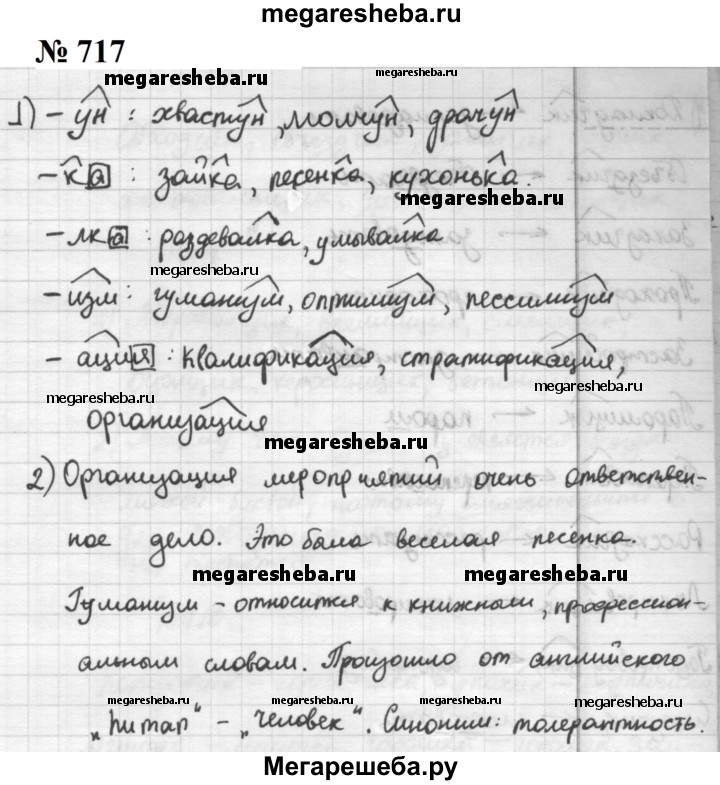 megaresheba.ru
№ 717
megaresheba.ru megaresheba.ru
1) - ун : хвастун, молчун, драчун
- ка : зайка, песенка, кухонька.
megaresheba.ru
- лка : раздевалка, умывалка
megaresheba.ru
- изм : гуманизм, оптимизм, пессимизм
megaresheba.ru
- ация : квалификация, стратификация,
megaresheba.ru
организация
megaresheba.ru
2) Организация мероприятий очень ответствен-
ное дело. Это была веселая песенка.
megaresheba.ru megaresheba.ru
Гуманизм - относится к книжным, професион-
альным словам. Произошло от английского
megaresheba.ru megaresheba.ru megaresheba.ru megaresheba.ru
„human“ - „человек“. Синоним: толерантность.
Мегарешеба.ру